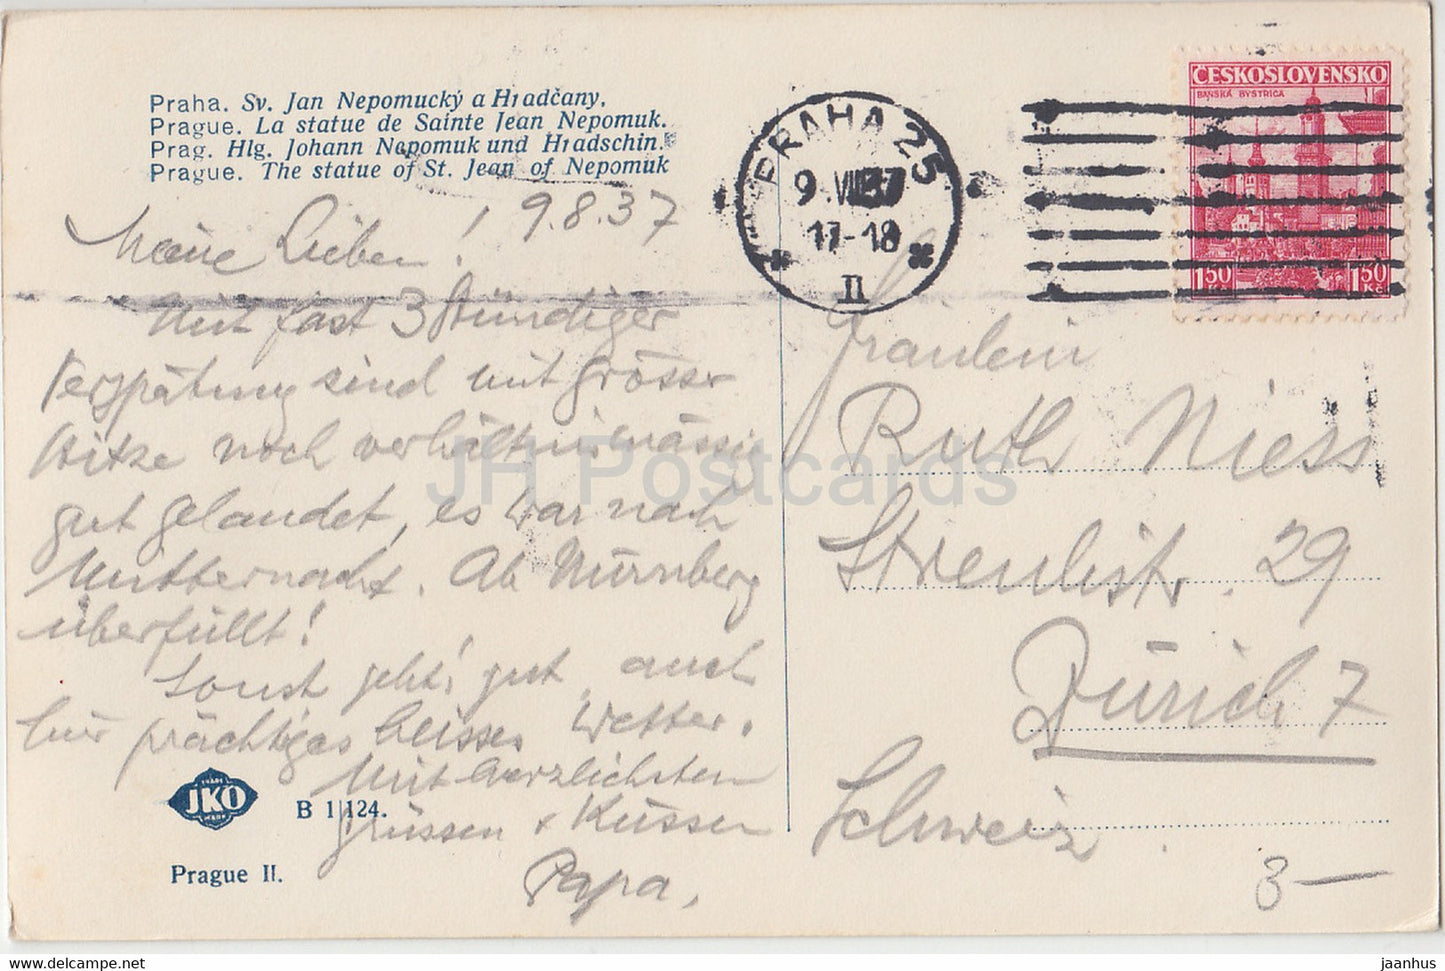 Praha. Sv. Jan Nepomucký a Hradčany.
Prague. La statue de Sainte Jean Nepomuk.
Prag. Hlg. Johann Nepomuk und Hradschin.
Prague. The statue of St. Jean of Nepomuk
9.8.37
Meine Lieben!
Mit fast 3 Stündiger
Verspätung sind mit grosser
Hitze noch verhältnismässig
gut gelandet, es war nach
Mitternacht. Ab Nürnberg
überfüllt!
Sonst geht's gut, auch
hier prächtiges heisses Wetter.
Mit herzlichsten
Grüssen + Küssen
Papa.
JKO
TRADE MARK
B 1/124.
Prague II.
PRAHA 25
9.VIII 37
17-18
II
ČESKOSLOVENSKO
BANSKÁ BYSTRICA
1·50 Kč
1·50 Kč
Fräulein
Ruth Niess
Streulistr. 29
Zürich 7
Schweiz
3—
JH Postcards
www.delcampe.net
jaanhus